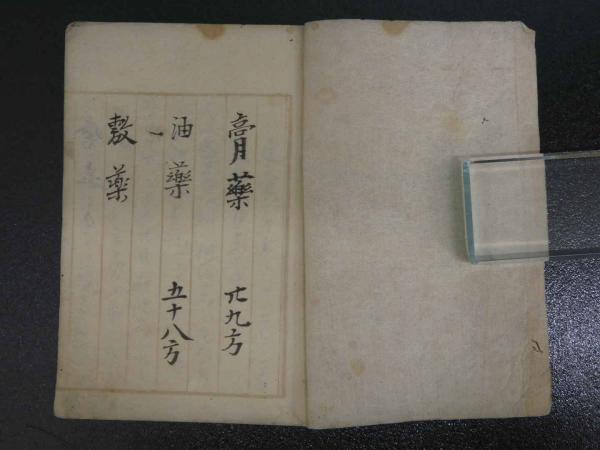 膏藥 廿九方
油藥 五十八方
敷藥